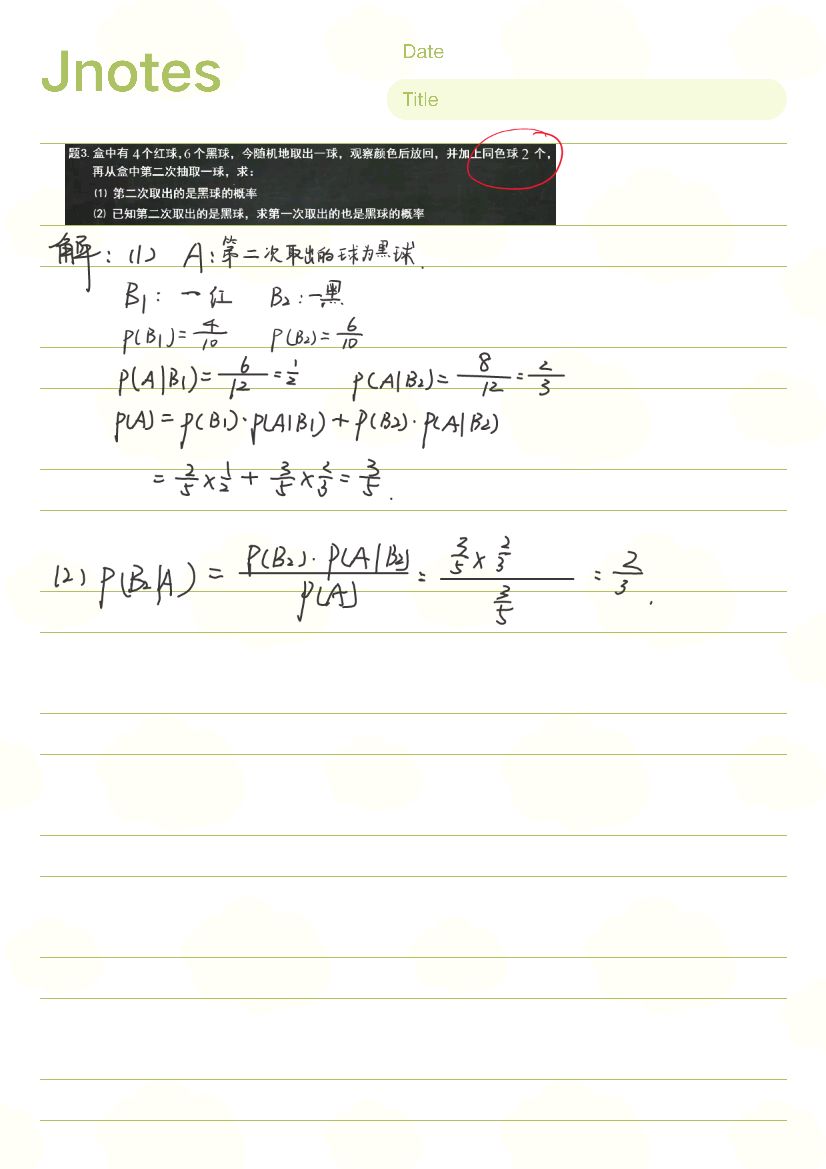 Jnotes
Date
Title
题3. 盒中有 4个红球, 6个黑球，今随机地取出一球，观察颜色后放回，并加上同色球 2 个，
再从盒中第二次抽取一球，求：
(1) 第二次取出的是黑球的概率
(2) 已知第二次取出的是黑球，求第一次取出的也是黑球的概率
解：(1) A：第二次取出的球为黑球.
B₁：一红 B₂：一黑
P(B₁)=4/10 P(B₂)=6/10
P(A|B₁)=6/12=1/2 P(A|B₂)=8/12=2/3
P(A)=P(B₁)·P(A|B₁)+P(B₂)·P(A|B₂)
=2/5×1/2+3/5×2/3=3/5.
(2) P(B₂|A)=P(B₂)·P(A|B₂)/P(A)=(3/5×2/3)/(3/5)=2/3.